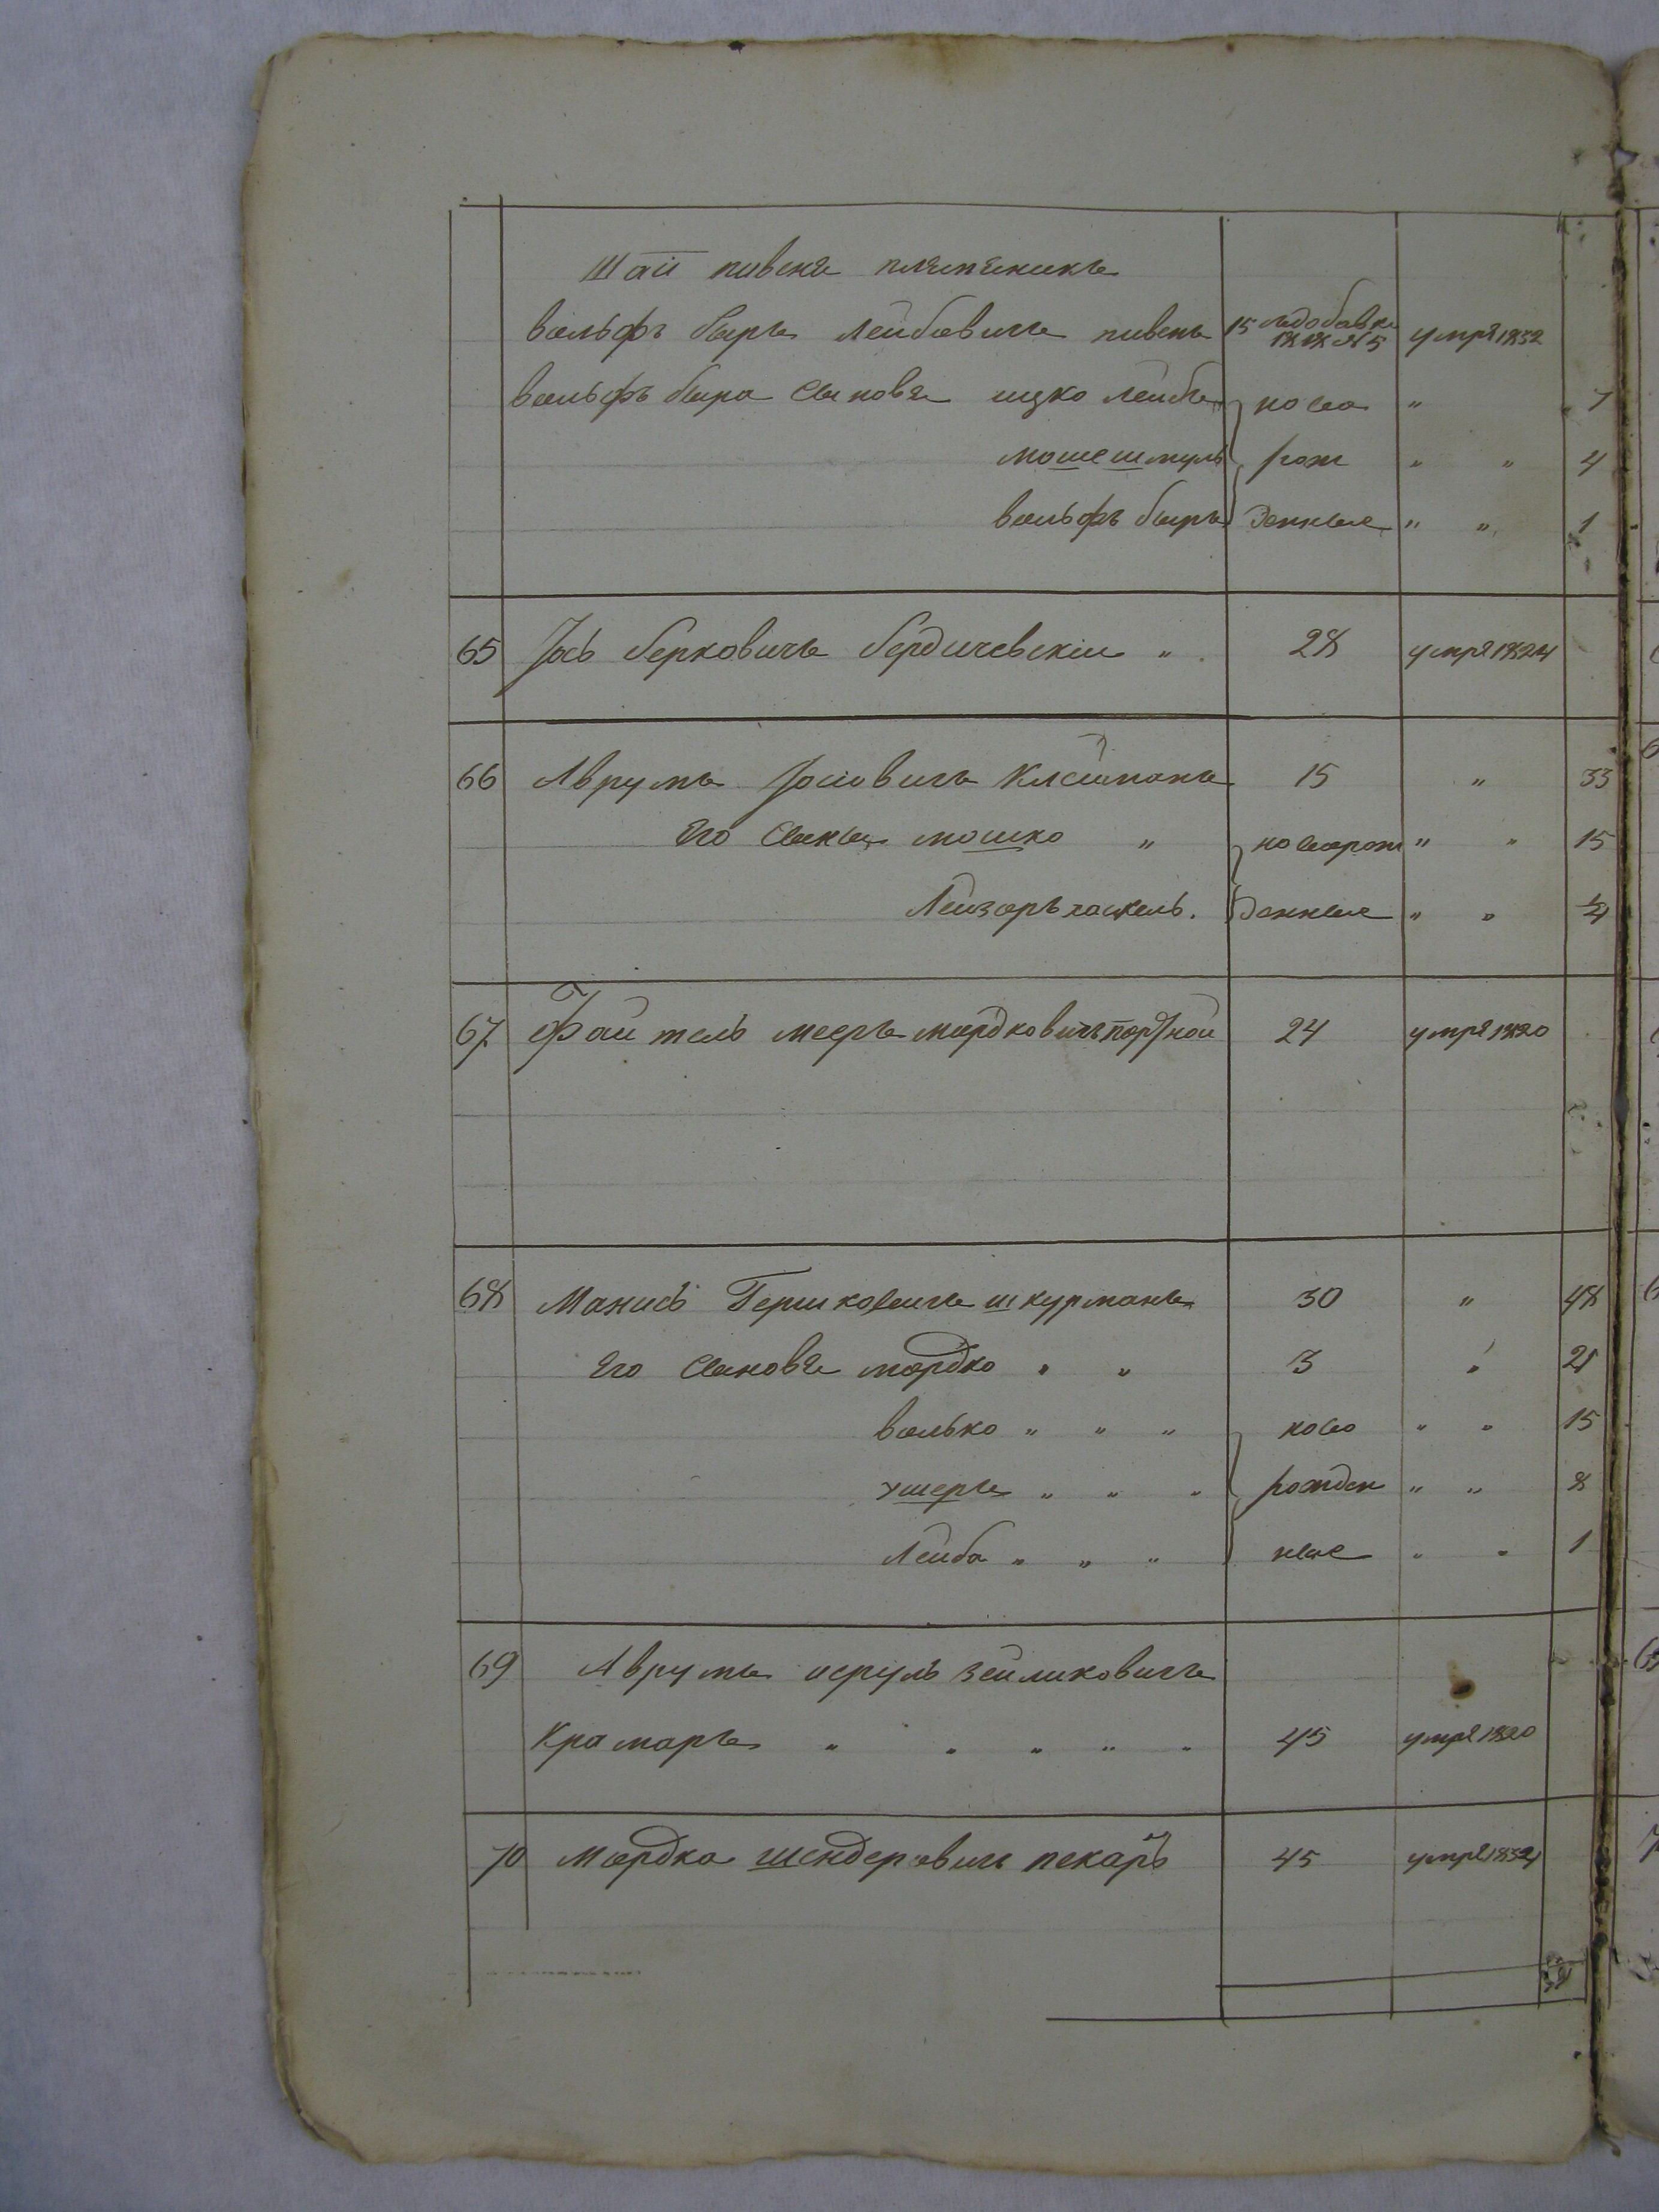 Шаи пивня племяникъ
вольфъ беръ Лейбовичъ пивень 15 подобавке 1818 №5 умре 1832
вольфъ бера сыновя ицко лейба ново " 7
мошешмуль рож " " 4
вольфъ беръ денные " " 1
65 Іось берковичъ бердичевскіи " 28 умре 1824
66 Аврумъ Іосиовичъ Клейманъ 15 " 33
Его сыны мошко " новорож " " 15
Лейзоръ хаскель. денные " "
67 Файтель мееръ мордковичъ портной 24 умре 1820
68 Манись Гершковичъ шкурманъ 30 " 48
Его сыновя мордко " " 3 " 21
волько " " " ново " " 15
ушеръ " " " рожден " " 8
Лейба " " " ные " " 1
69 Аврумъ исруль зейликовичъ
Крамаръ " " " " " 45 умре 1820
70 Мордко шендеровичъ пекарь 45 умре 1834